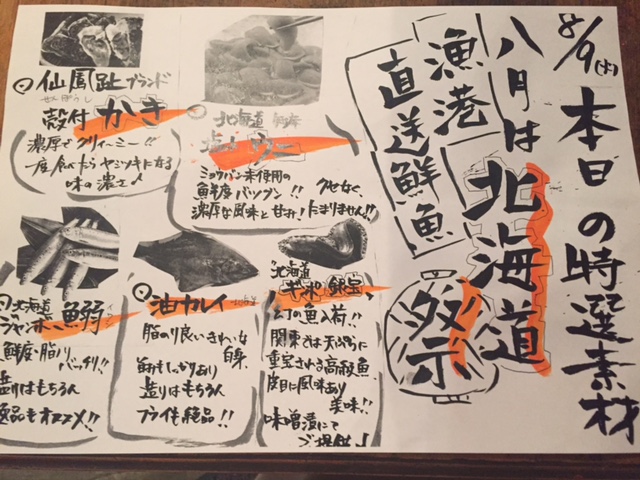 8/9(火)
本日の特選素材
八月は北海道祭
漁港
直送鮮魚
北海道
ウニ
ミョウバン未使用の
鮮度バツグン!! クセなく
濃厚な風味と甘み! たまりません!!
仙鳳趾ブランド
せんぽうし
殻付かき
濃厚でクリィーミー!!
一度食べたらヤミツキになる
味の濃さ♪
北海道
ギンポ 銀宝
幻の魚入荷!!
関東では天ぷらに
重宝される高級魚
皮目に風味あり
美味!!
味噌漬にて
ご提供♩
油カレイ
脂のり良いきれいな
白身
旨みもしっかりあり
造りはもちろん
フライも絶品!!
北海道
ジャンボ鰯
鮮度・脂のり
バッチリ!!
造りはもちろん
逸品もオススメ!!